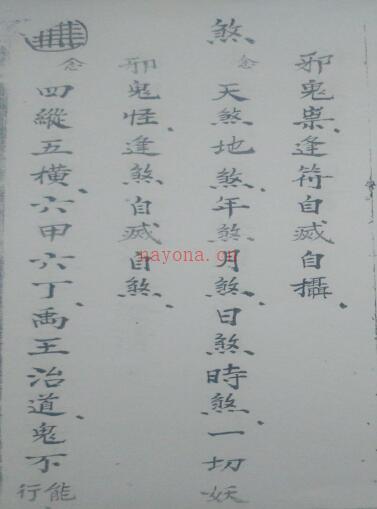 邪鬼祟、逢符自滅自攝、
煞念天煞地煞、年煞月煞、日煞時煞、一切妖
邪鬼怪、逢煞自滅自煞、
念四縱五橫、六甲六丁、禹王治道、鬼不能行、
nayona.cn